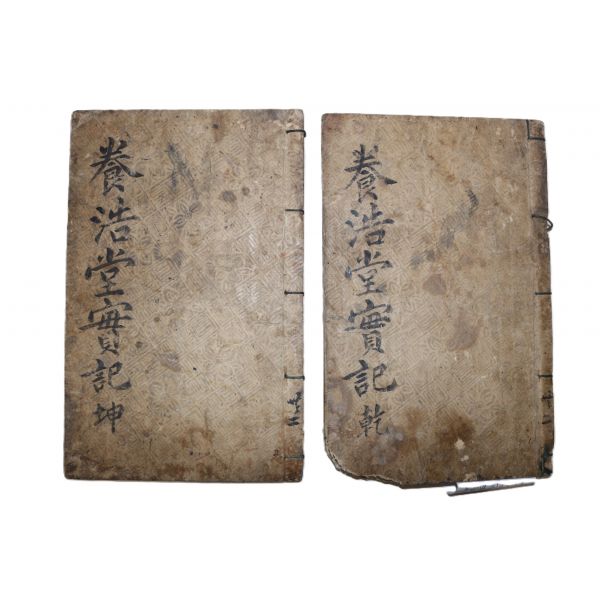 養浩堂實記 坤
養浩堂實記 乾